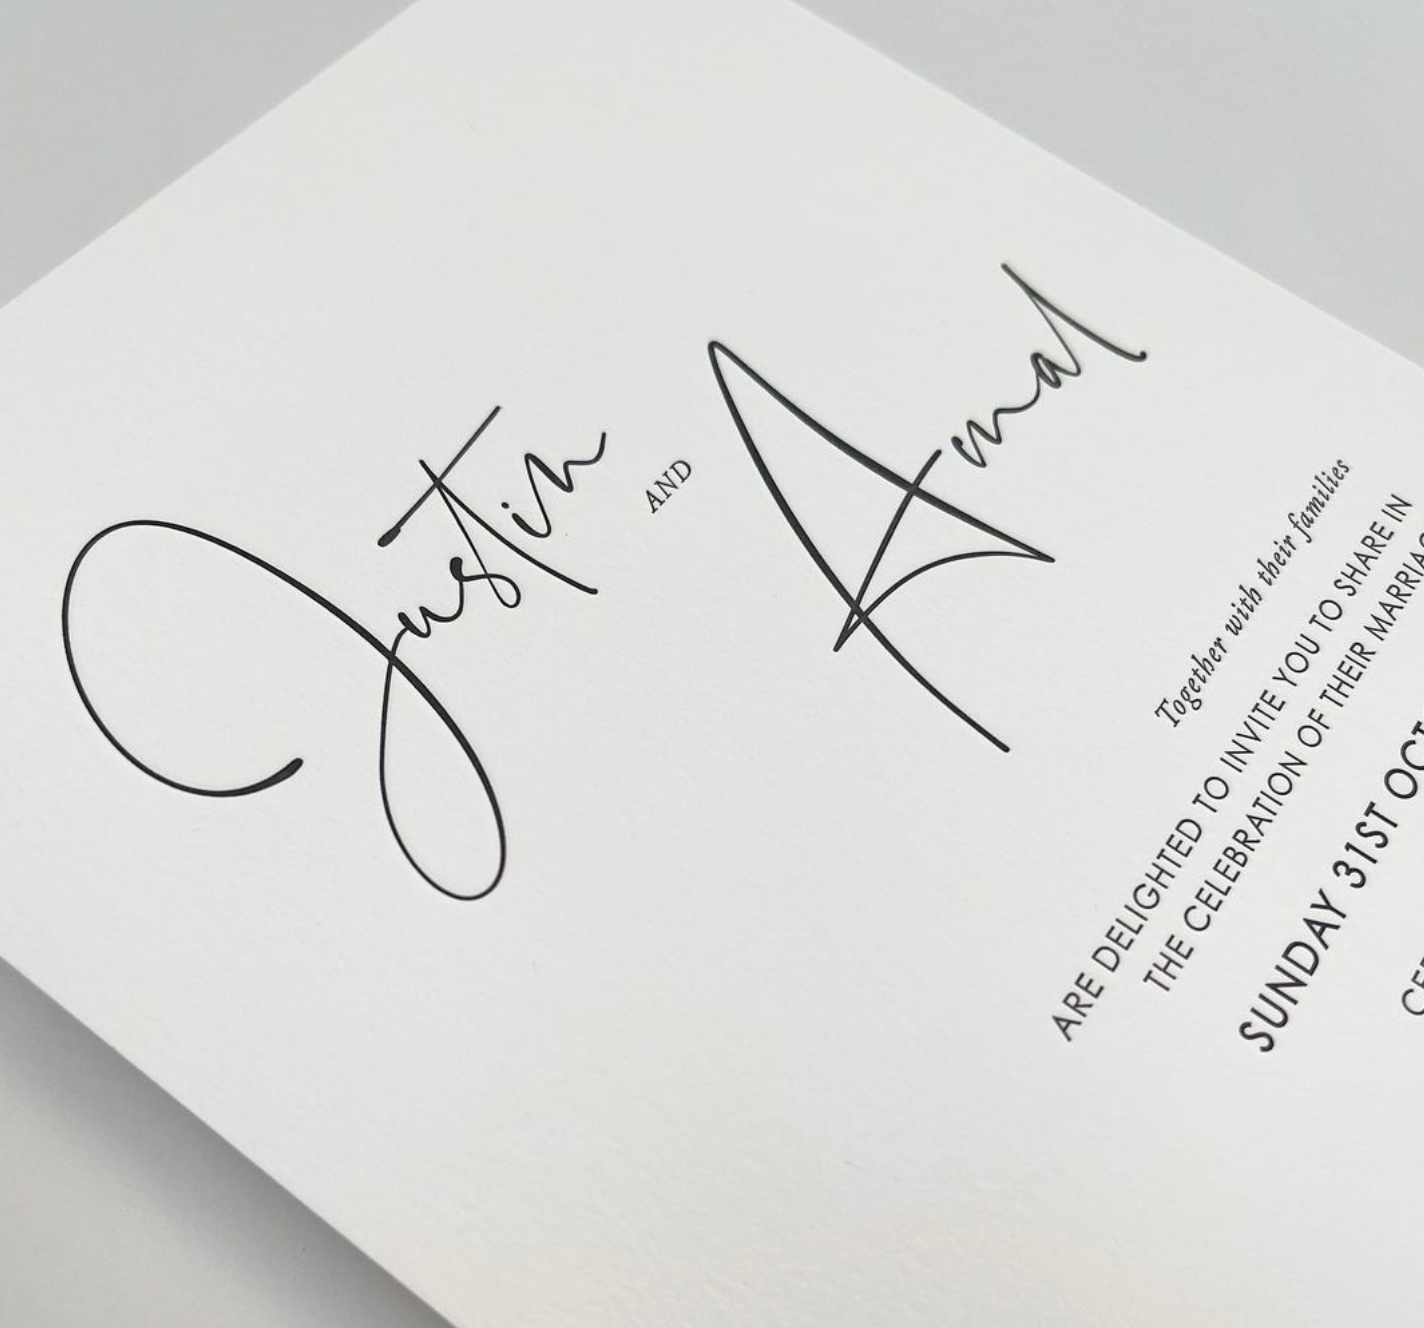 Justin AND Amal
Together with their families
ARE DELIGHTED TO INVITE YOU TO SHARE IN
THE CELEBRATION OF THEIR
SUNDAY 31ST